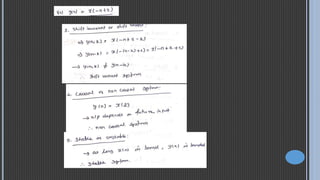 (v) y(n) = x(-n+2)
1. Shift invariant or shift variant:
⇒ y(n,k) = x(-n+2-k)
⇒ y(n-k) = x(-(n-k)+2) = x(-n+k+2)
→ y(n,k) ≠ y(n-k)
∴ Shift variant system
2. Causal or non causal system:
y(0) = x(2)
→ o/p depends on future input
∴ non causal system
3. Stable or unstable:
→ as long x(n) is bound, y(n) is bounded
∴ Stable system.